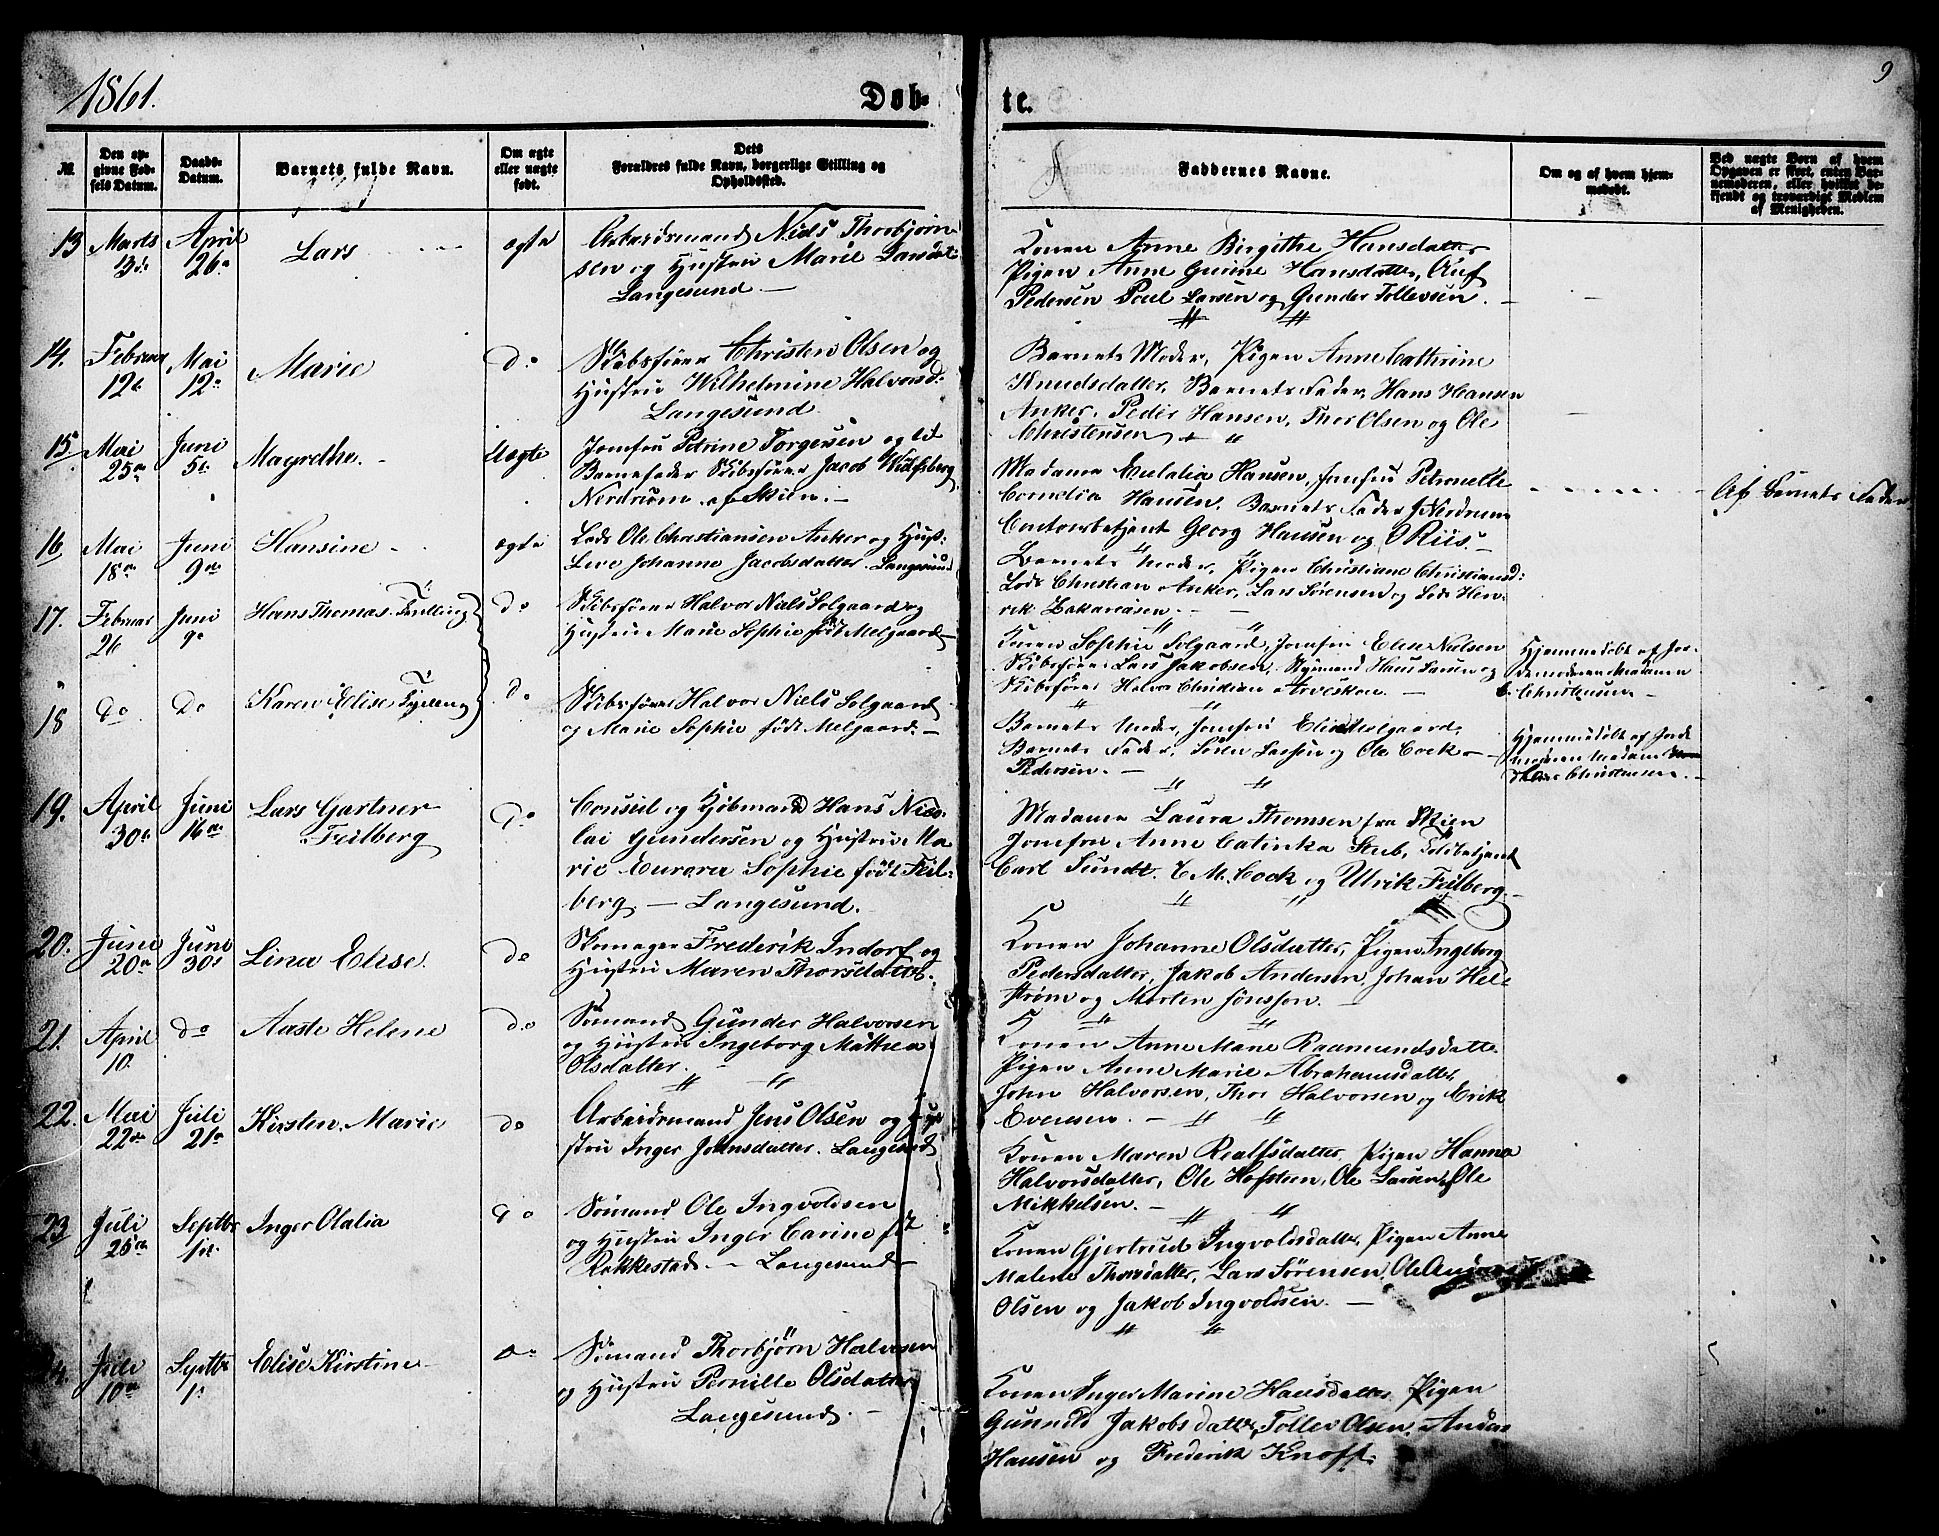 1861.
Døb-
te.
9
№
Den op-
givne Fød-
sels Datum.
Daabs-
Datum.
Barnets fulde Navn.
Om ægte
eller uægte
født.
Dets
Forældres fulde Navn, borgerlige Stilling og
Opholdssted.
Faddernes Navne.
Om og af hvem hjem-
medøbt.
Ved uægte Børn af hvem
Opgaven er skeet, enten Bar-
nemoderen, eller hvilket be-
kjendt og troværdigt Medlem
af Menigheden.
13 Marts April
26
Lars
ægte
Arbeidsmand Niels Thorbjørn-
sen og Hustru Marie Larsdt
Langesund.
Konen Anne Birgithe Hansdatter
Pigen Anne Gurine Hansdatter, Oluf
Pedersen Poul Larsen og Gunder Tollevsen.
14. Februar Mai
12 12
Marie
do
Skibsfører Christen Olsen og
Hustru Wilhelmine Halvorsd:
Langesund.
Barnets Moder, Pigen Anne Cathrine
Knudsdatter, Barnets Fader, Hans Hansen
Anker, Peder Hansen, Thor Olsen og Ole
Christensen
15. Mai Juni
25 5
Magrethe.
Uægte
Jomfru Petrine Torgersen og til
Barnefader Skibsfører Jacob Wulfsberg
Nordrum af Skien.
Madame Eulalia Hansen, Jomfru Petronelle
Cornelia Hansen, Barnets Fader J Nordrum
Contoirbetjent Georg Hansen og O Riis.
Af Barnets Fader
16 Mai Juni
18 9
Hansine
ægte
Lods Ole Christiansen Anker og Hust:
Live Johanne Jacobsdatter. Langesund
Barnets Moder, Pigen Christiane Christiansd:
Lods Christian Anker, Lars Sørensen og Lods Hen-
rik Zakariasen.
17. Februar Juni
26 9
Hans Thomas. Tvilling
do
Skibsfører Halvor Niels Solgaard og
Hustru Marie Sophie født Melgaard
Konen Sophie Solgaard, Jomfru Elise Nielsen
Skibsfører Lars Jakobsen, Styrmand Hans Larsen og
Skibsfører Halvor Christian Arvesken.
Hjemmedøbt af Jor-
demoderen Madam
Christensen
18 do Do
Karen Elise Tvilling
do
Skibsfører Halvor Niels Solgaard
og Marie Sophie født Melgaard.
Barnets Moder, Jomfru Elise Melgaard,
Barnets Fader, Søren Larsen og Ole Cock
Pedersen.
Hjemmedøbt af Jorde
moderen Madam
Christensen.
19. April Juni
30 16
Lars Gartner
Feilberg
do
Consul og Kjøbmand Hans Nico-
lai Gundersen og Hustru Ma
rie Aurora Sophie født Feil-
berg. — Langesund.
Madame Laura Thomsen fra Skien
Jomfru Anne Catinka Stub, Toldbetjent
Carl Sundt. C. M. Cock og Ulrik Feilberg.
20. Juni Juni
20 30
Lina Elise.
do
Skomager Frederik Indorf og
Hustru Maren Thorsdatter.
Konen Johanne Olsdatter, Pigen Ingeborg
Pedersdatter, Jakob Andersen, Johan Hel
strøm og Morten Jonsson.
21. April do
10.
Aaste Helene
do
Sømand Gunder Halvorsen
og Hustru Ingeborg Mathea
Olsdatter.
Konen Anne Marie Raamundsdatter
Pigen Anne Marie Abrahamsdatter,
John Halvorsen, Thor Halvorsen og Erik
Evensen.
22. Mai Juli
22 21
Kirsten Marie
do
Arbeidsmand Jens Olsen og Hu
stru Inger Johnsdatter. Langesund
Konen Maren Realfsdatter, Pigen Hanna
Halvorsdatter, Ole Hofsteen, Ole Larsen, Ole
Mikkelsen.
23 Juli Septbr
25 1
Inger Olalia
do
Sømand Ole Ingvoldsen
og Hustru Inger Carine f
Rakkestad. — Langesund
Konen Gjertrud Ingvoldsdatter, Pigen Anne
Malene Thorsdatter, Lars Sørensen, Ole
Olsen og Jakob Ingvoldsen.
24. Juli Septbr
10 1
Elise Kirstine
do
Sømand Thorbjørn Halvorsen
og Hustru Pernille Olsdatter
Langesund.
Konen Inger Marine Hansdatter, Pigen
Gunnild Jakobsdatter, Tollev Olsen, Anders
Hansen og Frederik Knoff.